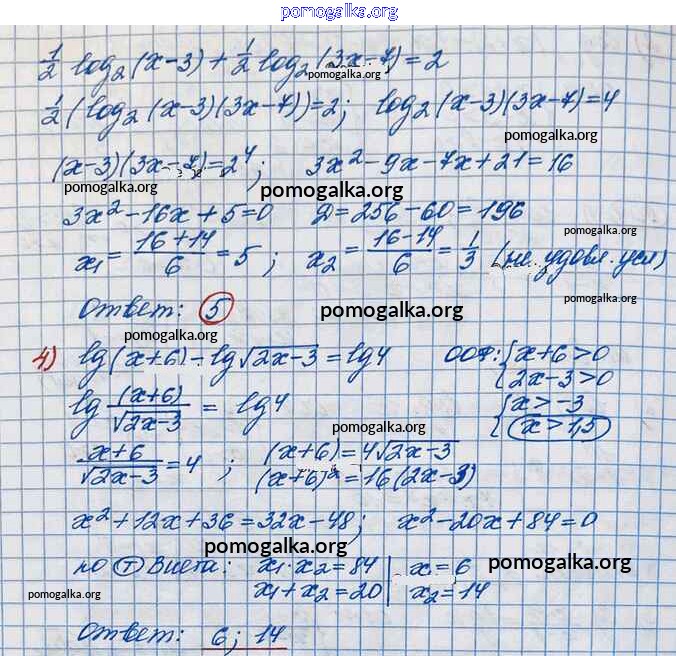 pomogalka.org
1/2 log₂(x-3) + 1/2 log₂(3x-7) = 2
pomogalka.org
1/2 (log₂(x-3)(3x-7)) = 2; log₂(x-3)(3x-7) = 4
pomogalka.org
(x-3)(3x-7) = 2⁴; 3x² - 9x - 7x + 21 = 16
pomogalka.org pomogalka.org
3x² - 16x + 5 = 0 D = 256 - 60 = 196
pomogalka.org
x₁ = (16+14)/6 = 5; x₂ = (16-14)/6 = 1/3 (не удовл. усл)
pomogalka.org
Ответ: 5
pomogalka.org
pomogalka.org
4) lg(x+6) - lg√(2x-3) = lg4 ООФ: { x+6>0
{ 2x-3>0
lg (x+6)/√(2x-3) = lg4 { x>-3
{ x>1,5
pomogalka.org
(x+6)/√(2x-3) = 4; (x+6) = 4√(2x-3)
(x+6)² = 16(2x-3)
x² + 12x + 36 = 32x - 48; x² - 20x + 84 = 0
pomogalka.org
по Т Виета: x₁·x₂ = 84 | x₁ = 6
pomogalka.org
x₁+x₂ = 20 | x₂ = 14
pomogalka.org
Ответ: 6; 14
pomogalka.org